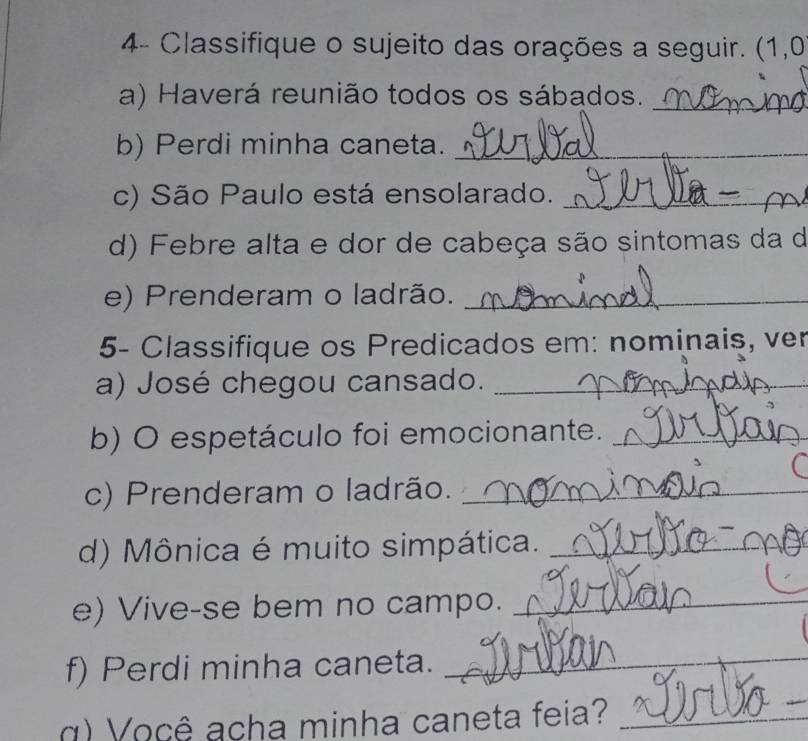 4- Classifique o sujeito das orações a seguir. (1,0
a) Haverá reunião todos os sábados. nomina
b) Perdi minha caneta. verbal
c) São Paulo está ensolarado. verbo - n
d) Febre alta e dor de cabeça são sintomas da d
e) Prenderam o ladrão. nominal
5- Classifique os Predicados em: nominais, ver
a) José chegou cansado. nominais
b) O espetáculo foi emocionante. verbais
c) Prenderam o ladrão. nominais
d) Mônica é muito simpática. verbo - no
e) Vive-se bem no campo. verbais
f) Perdi minha caneta. verbais
g) Você acha minha caneta feia? verbo -